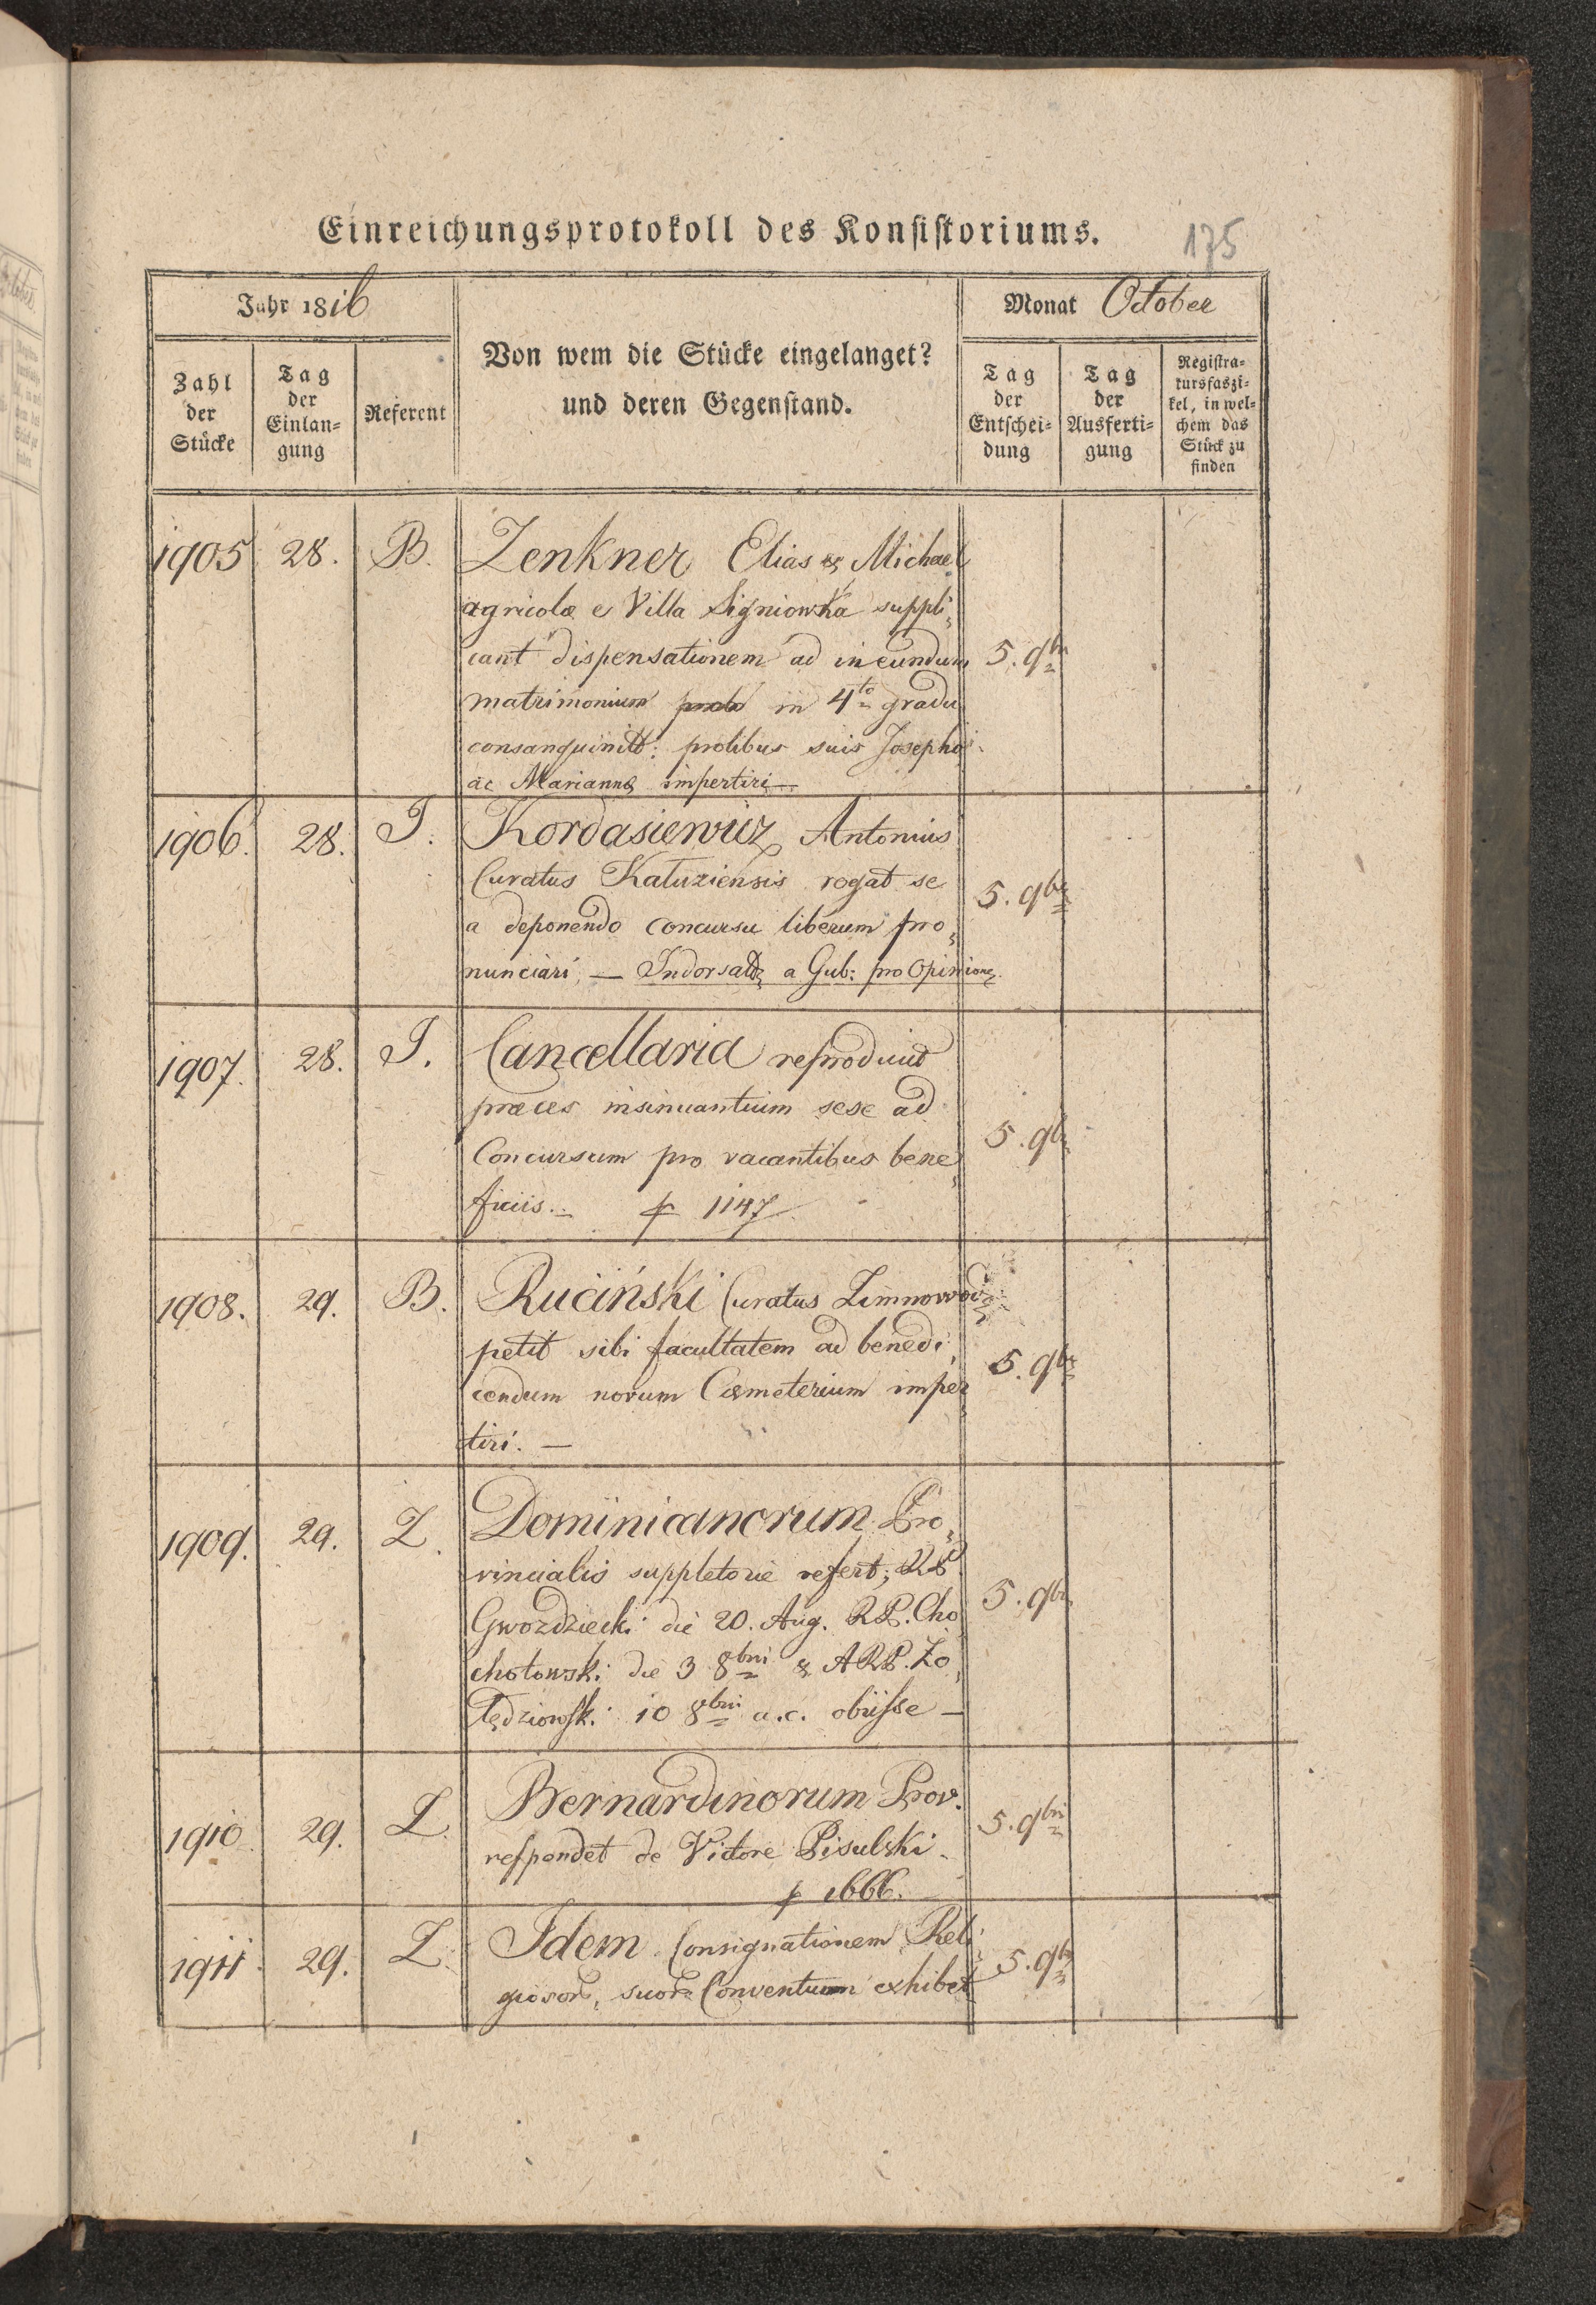 Einreichungsprotokoll des Konsistoriums.
175
Jahr 1816
Von wem die Stücke eingelanget?
und deren Gegenstand.
Monat October
Zahl
der
Stücke
Tag
der
Einlan=
gung
Referent
Tag
der
Entschei=
dung
Tag
der
Ausferti=
gung
Registra=
tursfaszi=
kel, in wel=
chem das
Stück zu
finden
1905 28. B. Zenkner Elias & Michael
agricolæ e Villa Signiowka suppli„
cant dispensationem ad ineundum 5. 9br
matrimonium in 4to gradu
consanguinit: prolibus suis Josepho
ac Mariannæ impertiri —
1906. 28. T. Kordasiewicz Antonius
Curatus Katuziensis rogat se 5. 9br
a deponendo concursu liberum pro„
nunciari, — Indorsat a Gub: pro Opinione.
1907. 28. T. Cancellaria reproducit
præces insinuantium sese ad
Concursum pro vacantibus bene„ 5. 9br
ficiis. — p 1147
1908. 29. B. Ruciński Curatus Zimnowod:
petit sibi facultatem ad benedi„ 5. 9br
cendum novum Cœmeterium imper„
tiri. —
1909. 29. Z. Dominicanorum Pro„
vincialis suppletorie refert; RP
Gwozdziecki die 20. Aug. RP. Cho 5. 9br
chotowski die 3 8bri & ARP. Zo„
tędziowski 10 8bri a.c. obiisse —
1910 29. Z. Bernardinorum Prov. 5. 9bri
respondet de Victore Pisulski.
p 1666.
1911. 29. Z. Idem Consignationem Reli 5. 9br
giosor, suor Conventuum exhibet